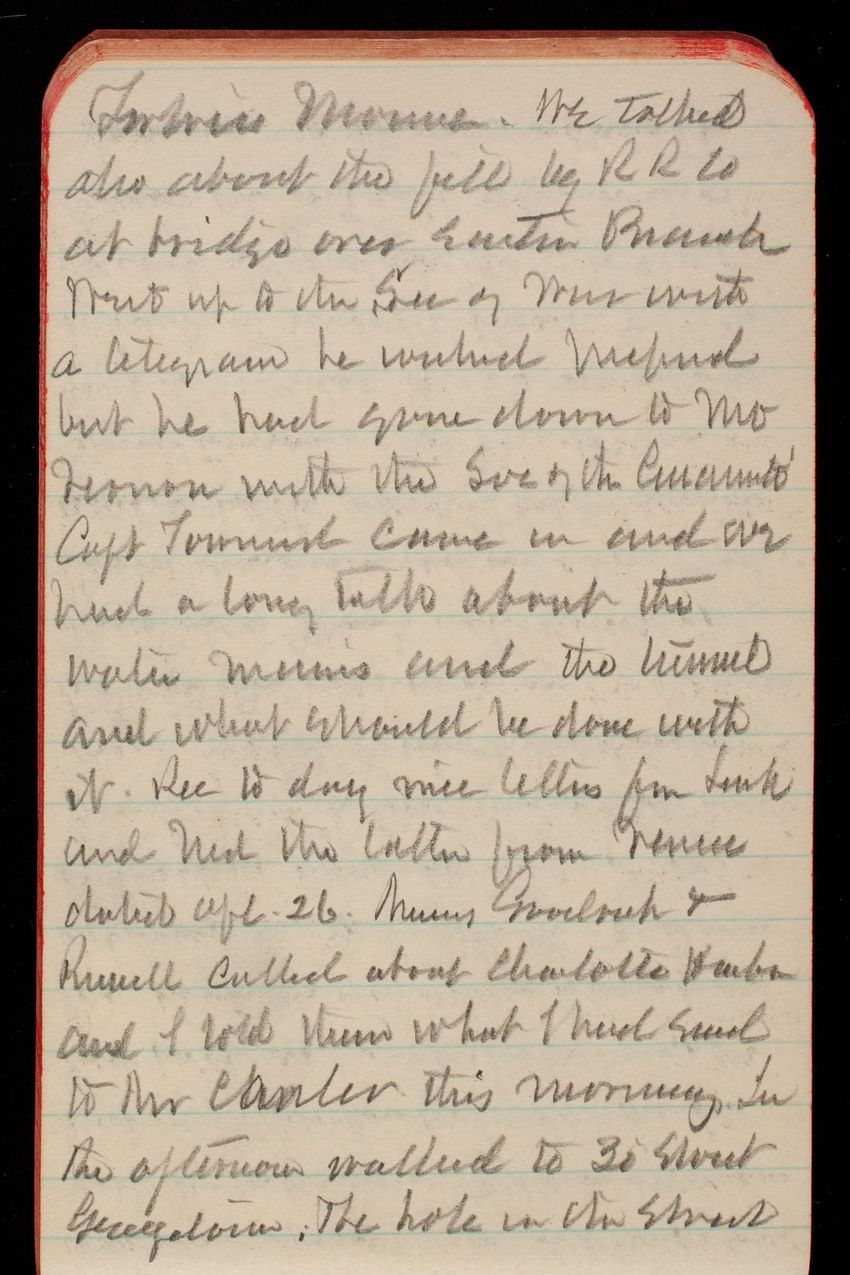 Fortress Monroe. We talked
also about the fill by R R Co
at bridge over Eastin Branch
Went up to the Sec of War with
a telegram he wished prepared
but he had gone down to Mt
Vernon with the Soc of the Cincinnati
Capt Townsend came in and we
had a long talk about the
water mains and the tunnel
and what should be done with
it. Rec to day nice letters fm
and Ned the latter from Venice
dated Apl. 26. Messrs &
Russell called about Charlotte Harbor
and I told them what I had said
to Mr this morning. In
the afternoon walked to 30 Street
Georgetown. The hole in the street